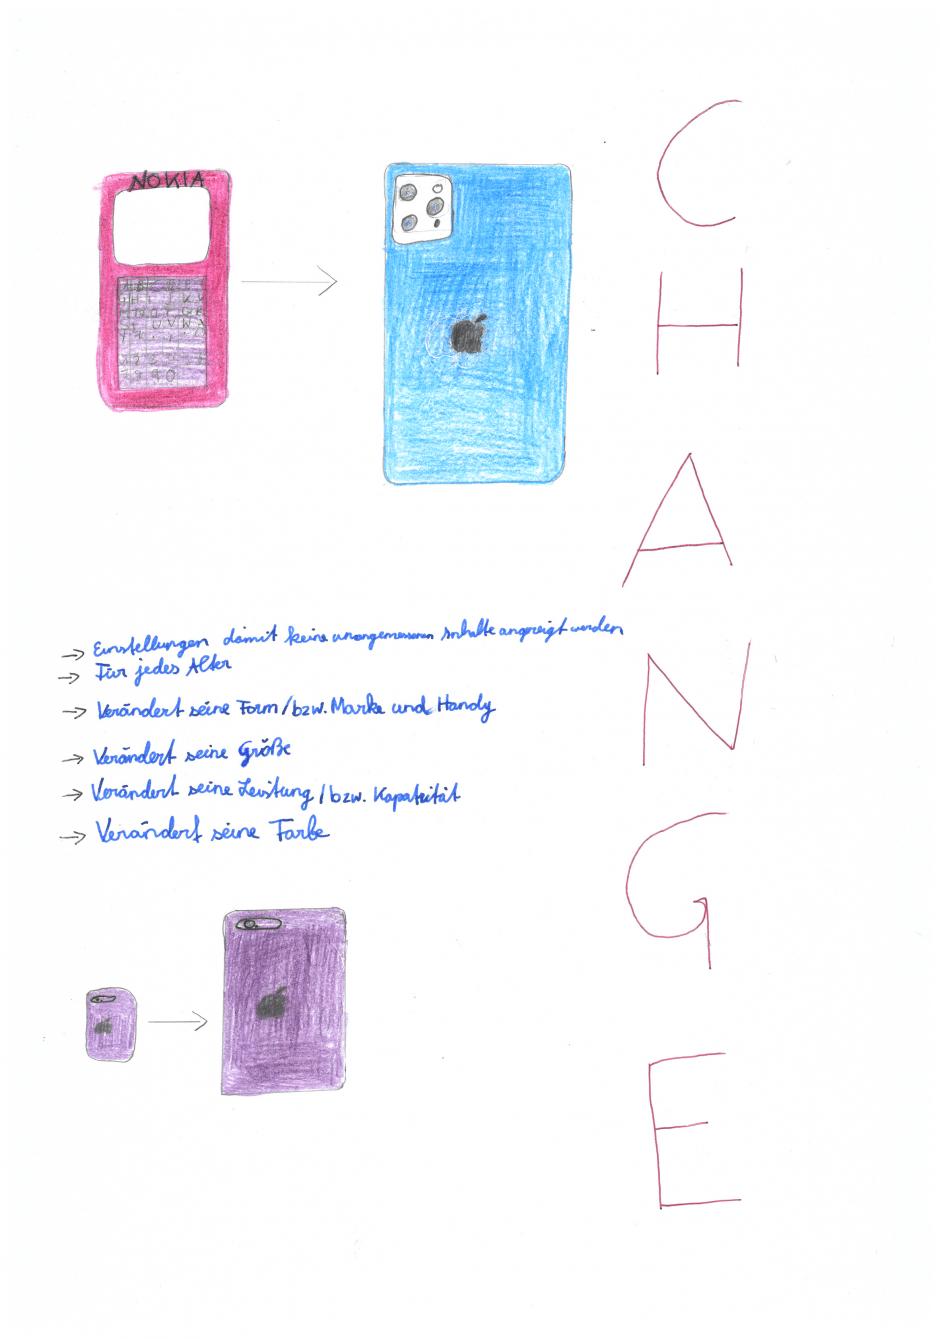 NOKIA
C
H
A
N
G
E
→ Einstellungen damit keine unangemessenen Inhalte angezeigt werden
→ Für jedes Alter
→ Verändert seine Form/bzw. Marke und Handy
→ Verändert seine Größe
→ Verändert seine Leistung / bzw. Kapatzität
→ Verändert seine Farbe